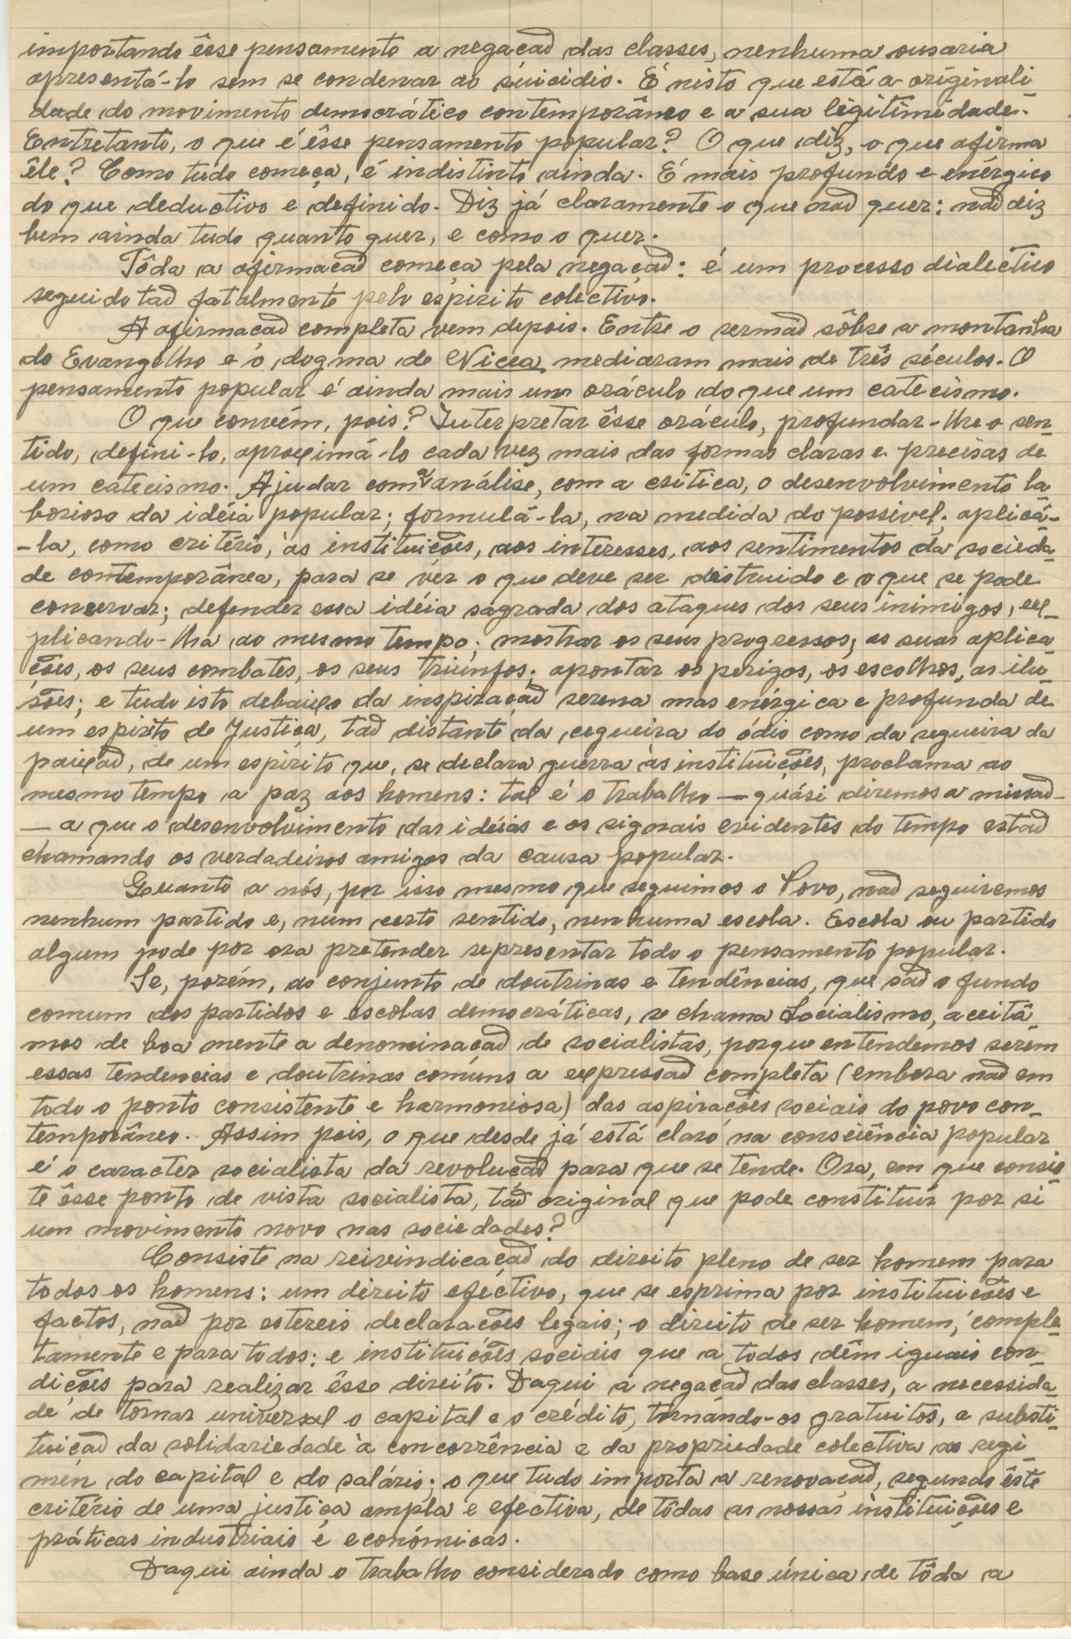 importando êsse pensamento a negação das classes, nenhuma ousaria
apresentá-lo sem se condenar ao suicídio. É nisto que está a originali-
dade do movimento democrático contemporâneo e a sua legitimidade.
Entretanto, o que é êsse pensamento popular? O que diz, o que afirma
êle? Como tudo começa, é indistinto ainda. É mais profundo e enérgico
do que deductivo e definido. Diz já claramente o que não quer: não diz
bem ainda tudo quanto quer, e como o quer.
Tôda a afirmação começa pela negação: é um processo dialectico
seguido tão fatalmente pelo espírito colectivo.
A afirmação completa vem depois. Entre o sermão sôbre a montanha
do Evangelho e o dogma de Nicea mediaram mais de três séculos. O
pensamento popular é ainda mais um oráculo do que um catecismo.
O que convém, pois? Interpretar êsse oráculo, profundar-lhe o sen-
tido, defini-lo, aproximá-lo cada vez mais das formas claras e precisas de
um catecismo. Ajudar com a análise, com a critica, o desenvolvimento la-
borioso da idéia popular; formulá-la, na medida do possivel; aplicá-
-la, como critério, às instituições, aos interesses, aos sentimentos da socieda-
de contemporânea, para se vêr o que deve ser distruido e o que se pode
conservar; defender essa idéia sagrada dos ataques dos seus inimigos, ex-
plicando-lha ao mesmo tempo; mostrar os seus progressos, as suas aplica-
ções, os seus combates, os seus triunfos; apontar os perigos, os escolhos, as ilu-
sões; e tudo isto debaixo da inspiração serena mas enérgica e profunda de
um espirito de Justiça, tão distante da cegueira do ódio como da cegueira da
paixão, de um espírito que, se declara guerra às instituições, proclama ao
mesmo tempo a paz aos homens: tal é o trabalho — quási diremos a missão —
— a que o desenvolvimento das idéias e os signais evidentes do tempo estão
chamando os verdadeiros amigos da causa popular.
Quanto a nós, por isso mesmo que seguimos o Povo, não seguiremos
nenhum partido e, num certo sentido, nenhuma escola. Escola ou partido
algum pode por ora pretender representar todo o pensamento popular.
Se, porém, ao conjunto de doutrinas e tendências, que são o fundo
comum dos partidos e escolas democráticas, se chama Socialismo, aceitá-
mos de boa mente a denominação de socialistas, porque entendemos serem
essas tendencias e doutrinas comuns a expressão completa (embora não em
todo o ponto consistente e harmoniosa) das aspirações sociais do povo con-
temporâneo. Assim pois, o que desde já está claro na consciência popular
é o caracter socialista da revolução para que se tende. Ora, em que consis-
te êsse ponto de vista socialista, tão original que pode constituir por si
um movimento novo nas sociedades?
Consiste na reivindicação do direito pleno de ser homem para
todos os homens: um direito efectivo, que se esprima por instituições e
factos, não por estereis declarações legais; o direito de ser homem, comple-
tamente e para todos: e instituições sociais que a todos dêm iguais con-
dições para realizar êsse direito. Daqui a negação das classes, a necessida-
de de tornar universal o capital e o crédito, tornándo-os gratuitos, a substi-
tuição da solidariedade à concorrência e da propriedade colectiva ao regi-
mén do capital e do salário; o que tudo importa a renovação, segundo êste
critério de uma justiça ampla e efectiva, de tôdas as nossas instituições e
práticas industriais e económicas.
Daqui ainda o trabalho considerado como base única de tôda a